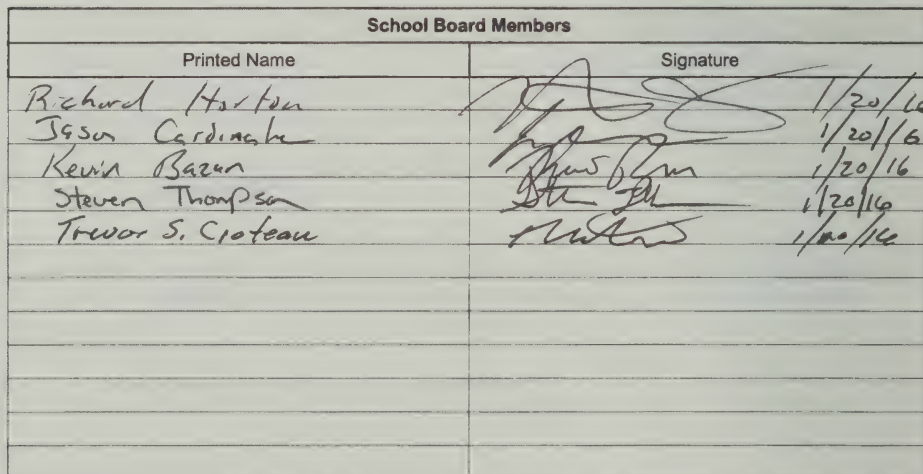 School Board Members
Printed Name Signature
Richard Horton 1/20/16
Jason Cardinale 1/20/16
Kevin Bazan 1/20/16
Steven Thompson 1/20/16
Trevor S. Croteau 1/20/16